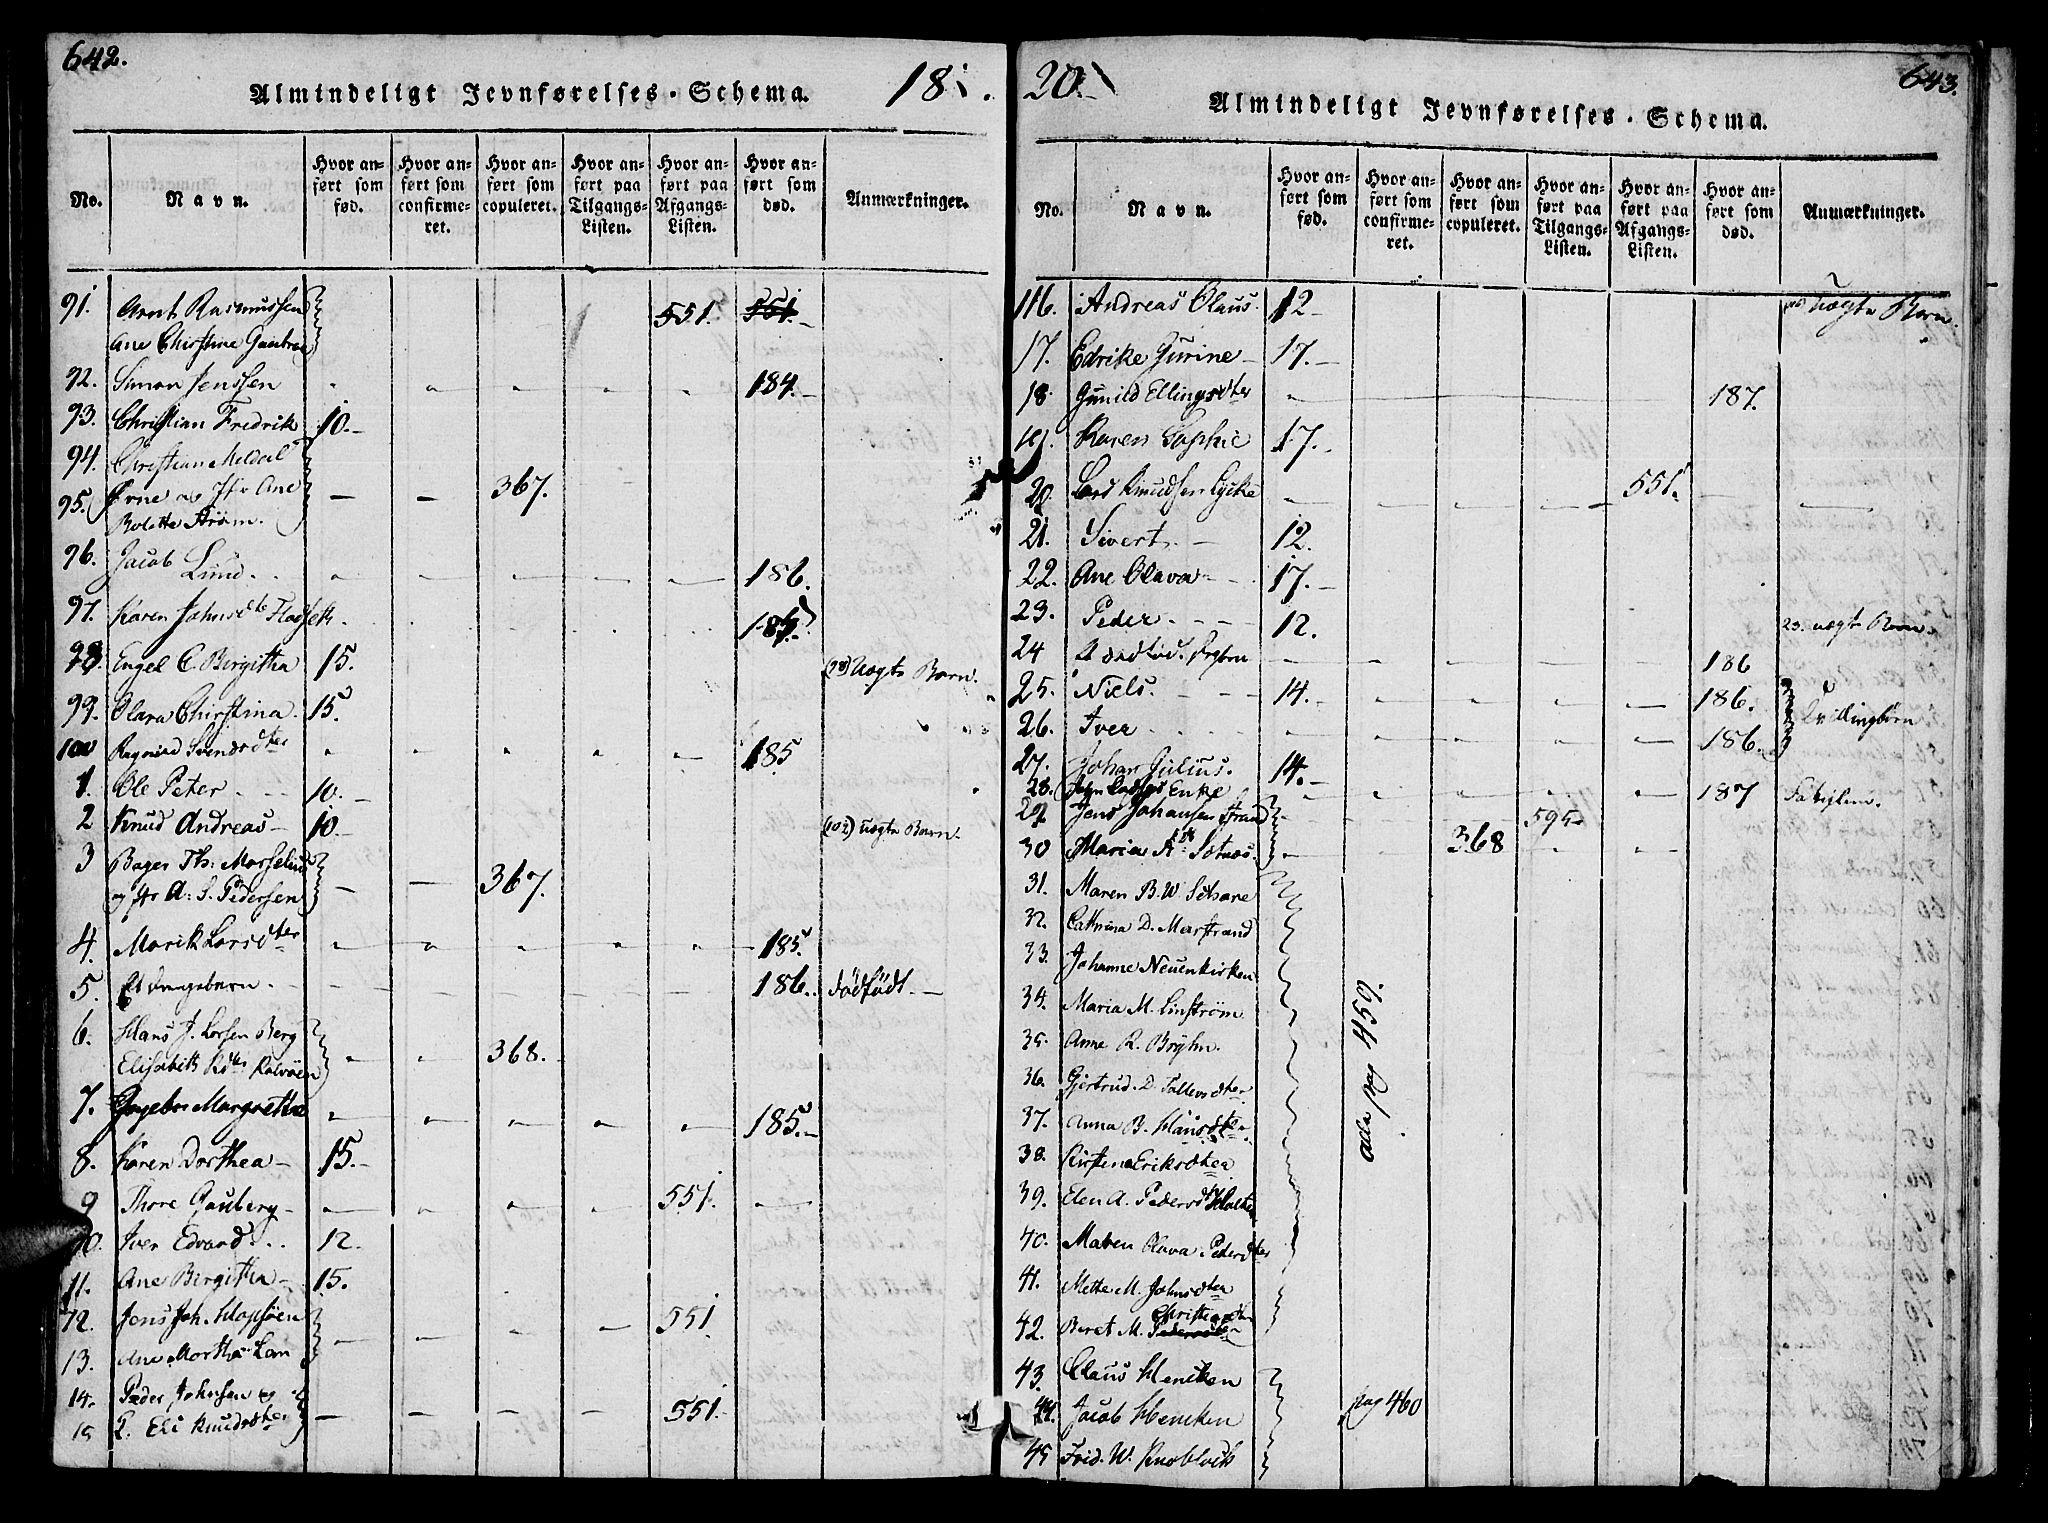 642.
Almindeligt Jevnførelses-Schema.
18
No.
Navn.
Hvor anført som fød.
Hvor anført som confirmeret.
Hvor anført som copuleret.
Hvor anført paa Tilgangs-Listen.
Hvor anført paa Afgangs-Listen.
Hvor anført som død.
Anmærkninger.
91. Arnt Rasmussen 551. 551.
Ane Christine
92. Simon Jenssen 184.
93. Christian Fredrik 10.
94. Christian Meldal
95. Ørne og Jfr Ane 367.
Bolette Strøm.
96. Jacob Lund. 186.
97. Karen Johnsdter 185.
98. Engel C. Birgitha 15. (98) Uægte Barn.
99. Olara Christina. 15.
100 Ragnild Svendsdter 185
1. Ole Peter 10.
2 Knud Andreas 10. (102) uægte Barn.
3 Bager Th: Marselius 367.
og jfr A. S. Pedersen
4. Marit Larsdter 185
5. Et Drengebarn. 186. dødfødt.
6. Hans J. Larsen Berg 368.
Elisabeth Rdter Kalvøen
7. Ingebor Margrethe 185.
8. Karen Dorthea 15.
9 Thore Gauberg 551.
10. Iver Edvard 12.
11. Ane Birgitha 15.
12. Jens Joh. Klopsøen 551
13. Ane Morthe Lam
14. Peder Johnsen og 551.
15 Q. Eli Knudsdter
20.
643.
Almindeligt Jevnførelses-Schema.
No.
Navn.
Hvor anført som fød.
Hvor anført som confirmeret.
Hvor anført som copuleret.
Hvor anført paa Tilgangs-Listen.
Hvor anført paa Afgangs-Listen.
Hvor anført som død.
Anmærkninger.
116. Andreas Olaus 12 uægte Barn.
17. Edrike Gurine 17.
18. Gunild Ellingsdter 187.
19. Karen Sophie 17.
20. Lars Knudsen Lycke 551.
21. Sivert 12.
22. Ane Olava 17.
23. Peder 12. 23. uægte Barn.
24 186
25. Niels. 14. 186. Tvillingbørn
26. Iver 186.
27. Johan Julius. 14.
28. Enke 187 Fattiglem.
29. Jens Johansen Strand 595
30 Maria 368
31. Maren B. W. Schare
32. Cathrina D. Marstrand
33. Johanne Neuenkirken
34. Maria M. Linstrøm
35. Anne R. Bryhn.
36. Gjertrud D. Tollevsdter
37. Anna B. Hansdter
38. Kirsten Eriksdter
39. Elen A. Pedersdter Holten
40. Maren Olava Pedersdter
41. Mette M. Johnsdter
Christiansdter
42. Beret M. Pedersdter
alle pag 459.
43. Claus Hencken
44. Jacob Hencken pag 460
45 Frid. W. Knoblock